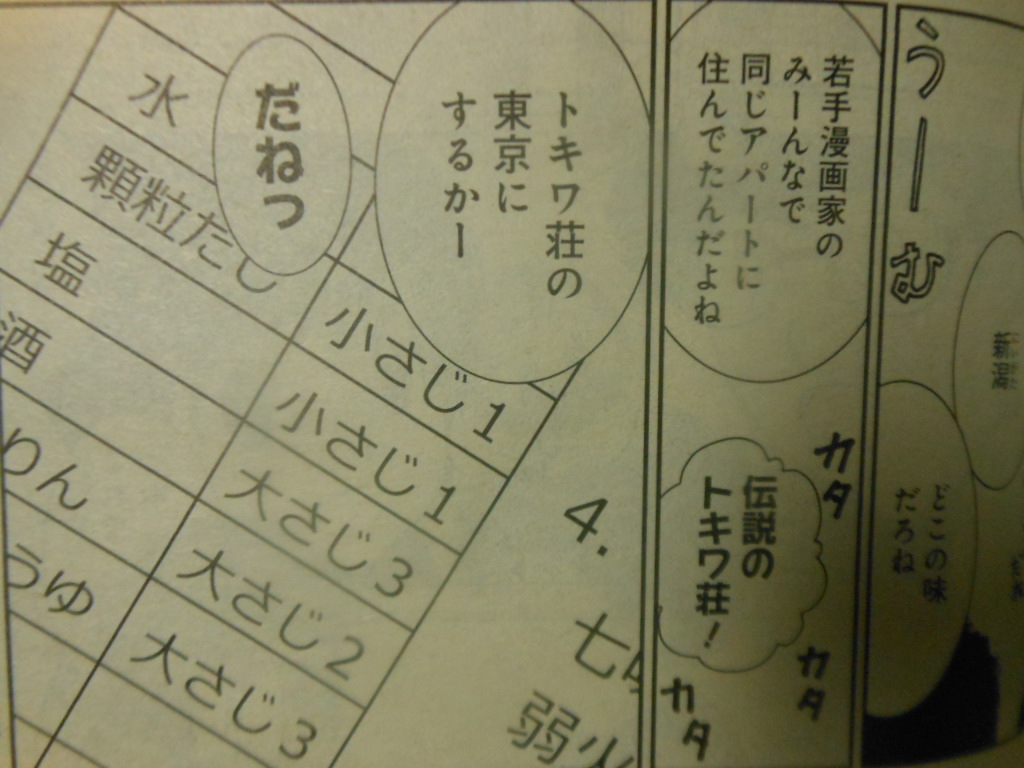 うーむ
どこの味
だろね
若手漫画家の
みーんなで
同じアパートに
住んでたんだよね
カタ
伝説の
トキワ荘!
カタ
カタ
トキワ荘の
東京に
するかー
だねっ
水
顆粒だし 小さじ1
塩 小さじ1
酒 大さじ3
りん 大さじ2
うゆ 大さじ3
4.
七
弱火